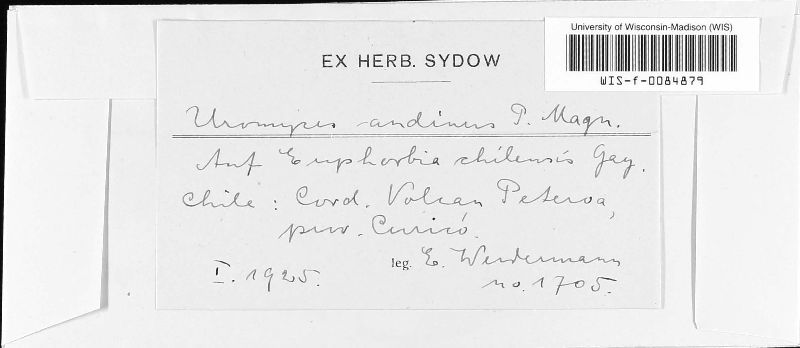 University of Wisconsin-Madison (WIS)
WIS-f-0084879
EX HERB. SYDOW
Uromyces andinus P. Magn.
Auf Euphorbia chilensis Gay.
Chile: Cord. Volcan Peteroa,
prov. Curicó.
leg. E. Werdermann
I. 1925.
no. 1705.